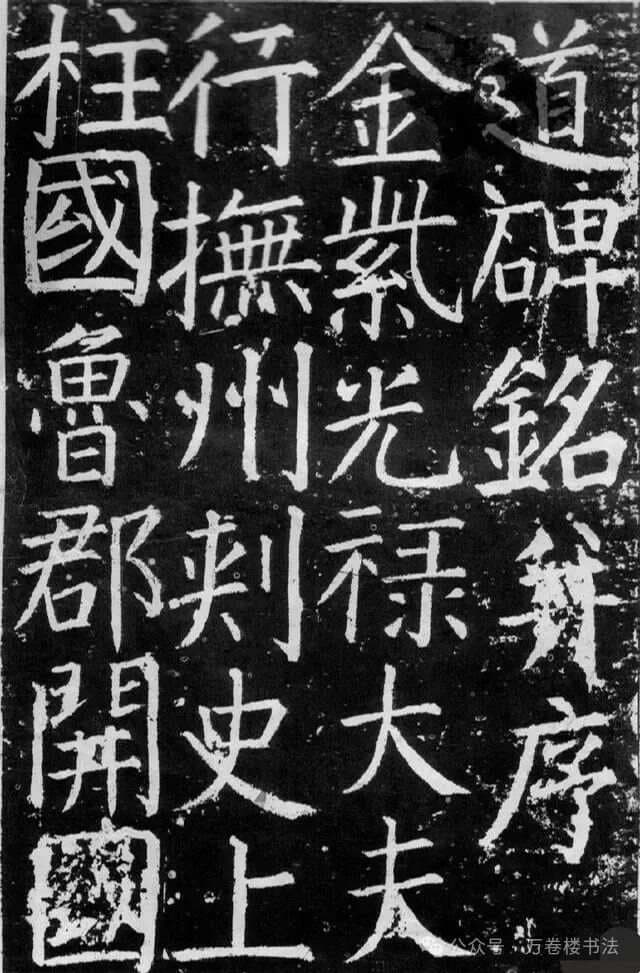 道碑銘并序
金紫光禄大夫
行撫州刺史上
柱國魯郡開國
公众号·万卷楼书法